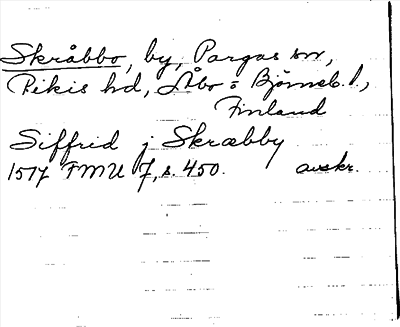 Skråbbo, by, Pargas sn,
Pikis hd, Åbo = Björneb. l.,
Finland
Siffrid j Skræbby
1517 FMU 7, s. 450. avskr.